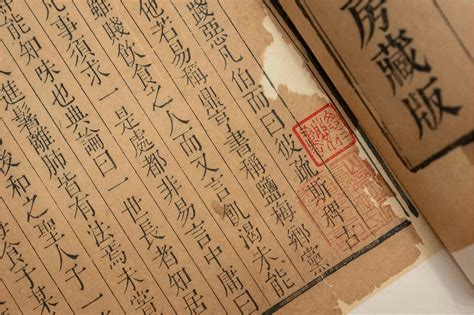 房藏版
踐惡凡伯而曰彼疏斯稗古
他若易稱鼎亨書稱鹽梅鄉黨
雖賤飲食之人而又言飢渴未能
凡事須求一是處都非易言中庸曰
能知味也典論曰一世長者知居
進鬐離肺皆有法焉未嘗
後和之聖人于
食于某